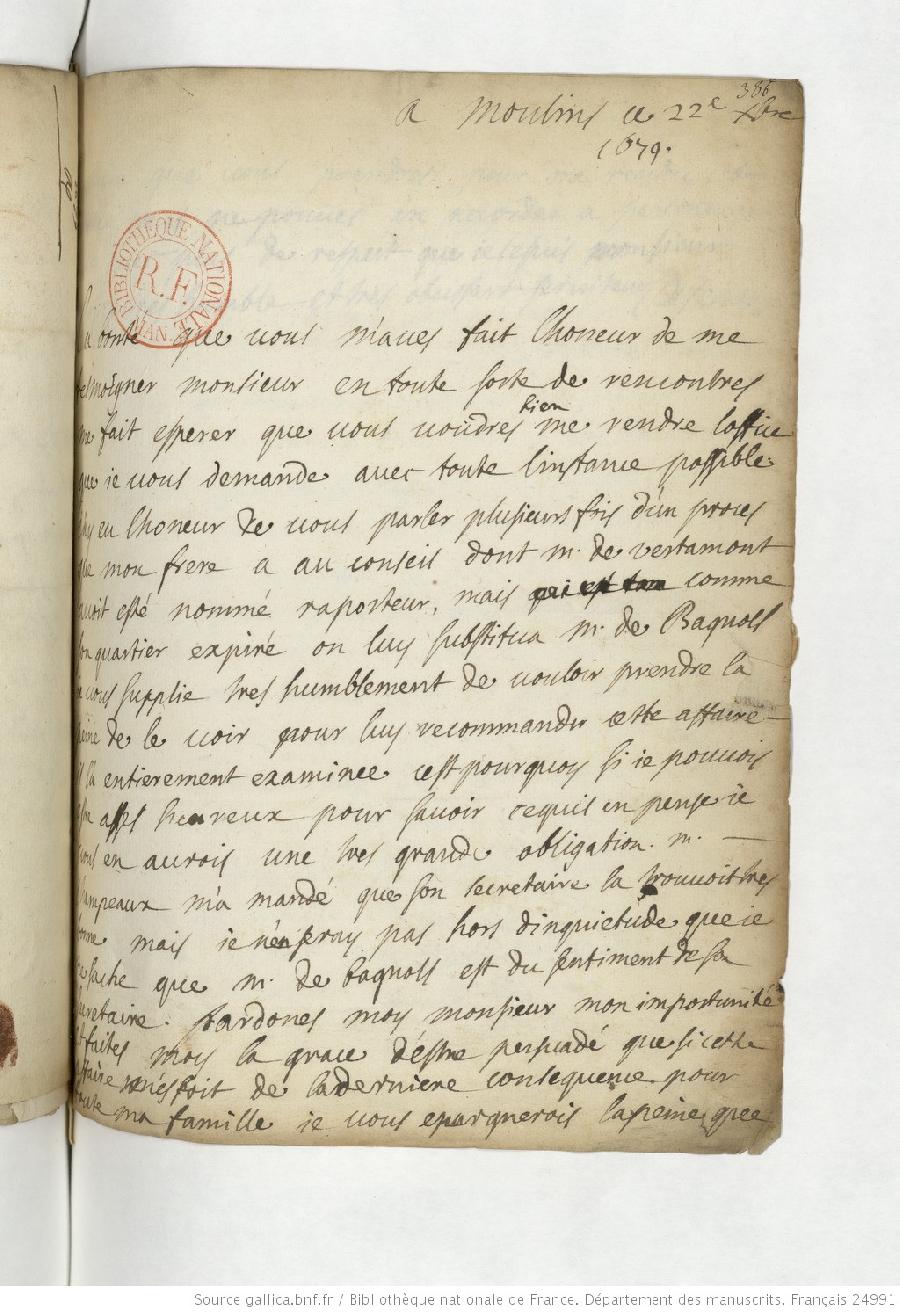 386
A Moulins ce 22e xbre
1679.
BIBLIOTHEQUE NATIONALE
R.F.
MAN.
La bonté que vous m'aues fait lhoneur de me
tesmoigner monsieur en toute sorte de rencontres
me fait esperer que vous voudres bien me rendre loffice
que ie vous demande auec toute linstance possible
Jay eu lhoneur de vous parler plusieurs fois d'un proces
que mon frere a au conseil dont m. de vertamont
auoit esté nommé raporteur, mais comme
son quartier expiré on luy substitua m. de Baquols
ie vous supplie tres humblement de vouloir prendre la
peine de le voir pour luy recommander cette affaire
il la entierement examinee cest pourquoy si ie pouuois
estre asses heureux pour sauoir cequil en pense ie
vous en aurois une tres grande obligation. m.
mpeaux m'a mandé que son secretaire la trouuoit tres
bonne mais ie n'en seray pas hors dinquietude que ie
ne sache que m. de baquols est du sentiment de sa
secretaire. Pardones moy monsieur mon importunité
et faites moy la grace d'estre persuadé que si cette
affaire n'estoit de laderniere consequence pour
toute ma famille ie vous epargnerois lapeine que
Source gallica.bnf.fr / Bibliothèque nationale de France. Département des manuscrits. Français 24991